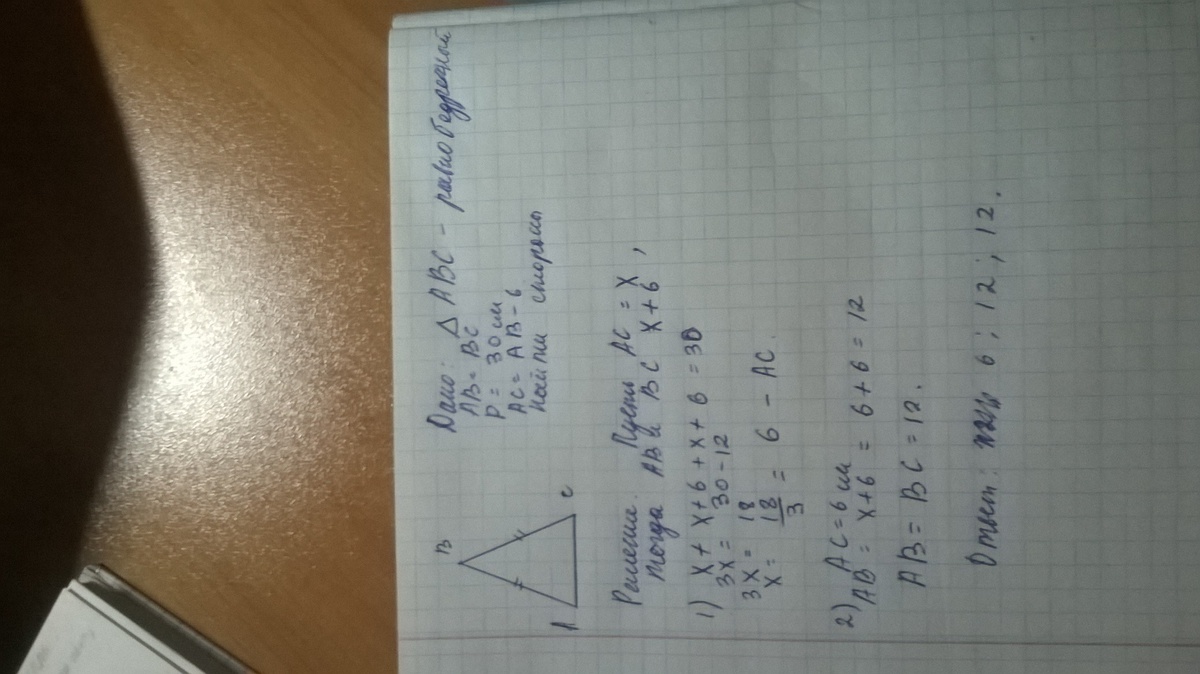 Дано: Δ ABC - равнобедренный
AB = BC
P = 30 см
AC = AB - 6
Найти стороны
B
A
C
Решение. Пусть AC = x,
тогда AB и BC x + 6
1) x + x + 6 + x + 6 = 30
3x = 30 - 12
3x = 18
x = 18/3 = 6 - AC.
2) AC = 6 см
AB = x + 6 = 6 + 6 = 12
AB = BC = 12.
Ответ: 6; 12; 12.